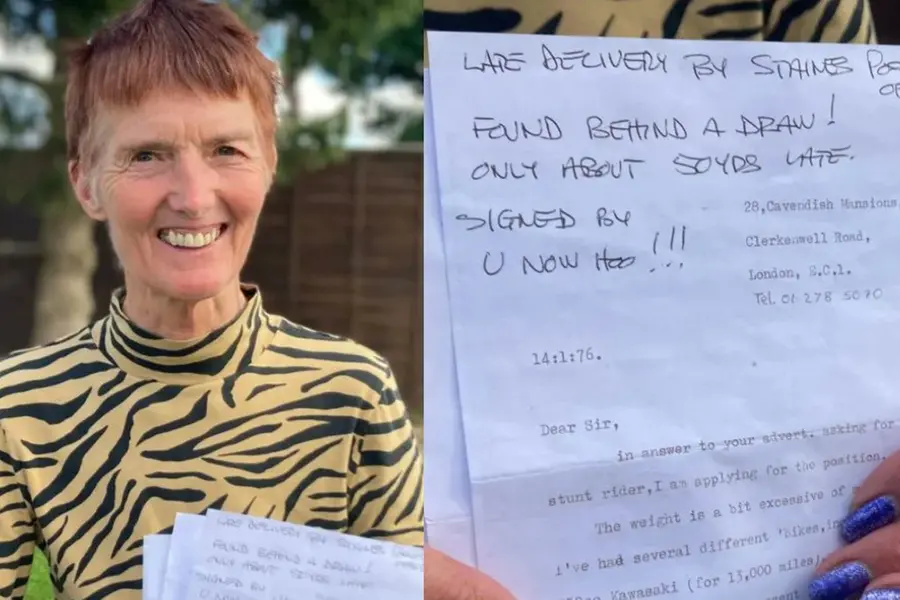 LATE DELIVERY BY STAINES
FOUND BEHIND A DRAW!
ONLY ABOUT 50YDS LATE.
SIGNED BY
U NOW Hoo!!!
28,Cavendish Mansions
Clerkenwell Road,
London, E.C.1.
Tel. 01 278 5070
14:1:76.
Dear Sir,
in answer to your advert. asking for
stunt rider,I am applying for the position.
The weight is a bit excessive of
I've had several different 'bikes,
Kawasaki (for 13,000 miles)
LATE DELIVERY BY STAINES
FOUND BEHIND A DRAW!
ONLY ABOUT 50YDS LATE
SIGNED BY